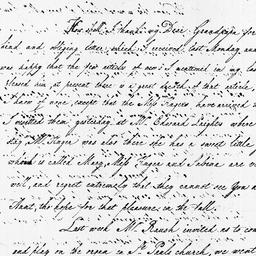 How well I thank my Dear Grandpapa for
kind and obliging letter which I received last Monday and
was happy that the few articles of news I mentioned in my last
pleased him, at present there is a great dearth of that article, I
have of none except that the Miss Singers have arrived
I visited them yesterday at Mr. Edward Lights where
day, Mr. Singer was also there she has a sweet little
whom is called Mary, Miss Singer and Sabina are v
well, and regret extremely that they cannot see you a
Aunt, the hope for that pleasure, in the Fall.
Last week Mr. Rausch invited us to com
and play on the organ in St. Pauls church, we went